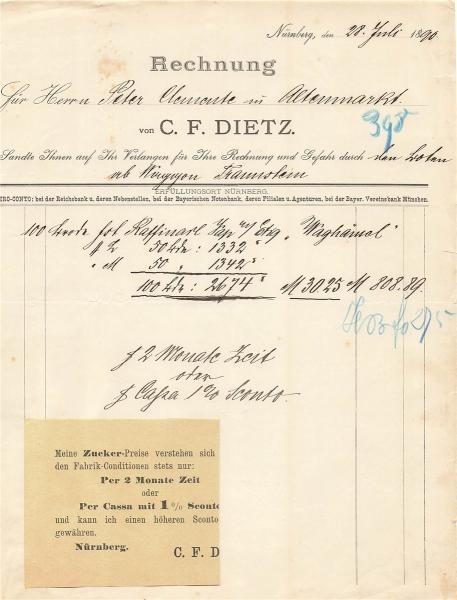 Nürnberg, den 28. Juli 1890.
Rechnung
für Herrn Peter Clemente in Altenmarkt.
von C. F. DIETZ.
398
Sandte Ihnen auf Ihr Verlangen für Ihre Rechnung und Gefahr durch den Boten
ab Waggon Traunstein
ERFÜLLUNGSORT NÜRNBERG.
GIRO-CONTO: bei der Reichsbank u. deren Nebenstellen, bei der Bayerischen Notenbank, deren Filialen u. Agenturen, bei der Bayer. Vereinsbank München.
100 Brode fst Raffinade "Waghäusel"
50 Bde: 1332
" M 50 " 1342
100 Bde: 2674 M 30.25 M 808.89.
p 2 Monate Zeit
oder
p Cassa 1% Sconto.
Meine Zucker-Preise verstehen sich
den Fabrik-Conditionen stets nur:
Per 2 Monate Zeit
oder
Per Cassa mit 1% Sconto
und kann ich einen höheren Sconto
gewähren.
Nürnberg.
C. F. D